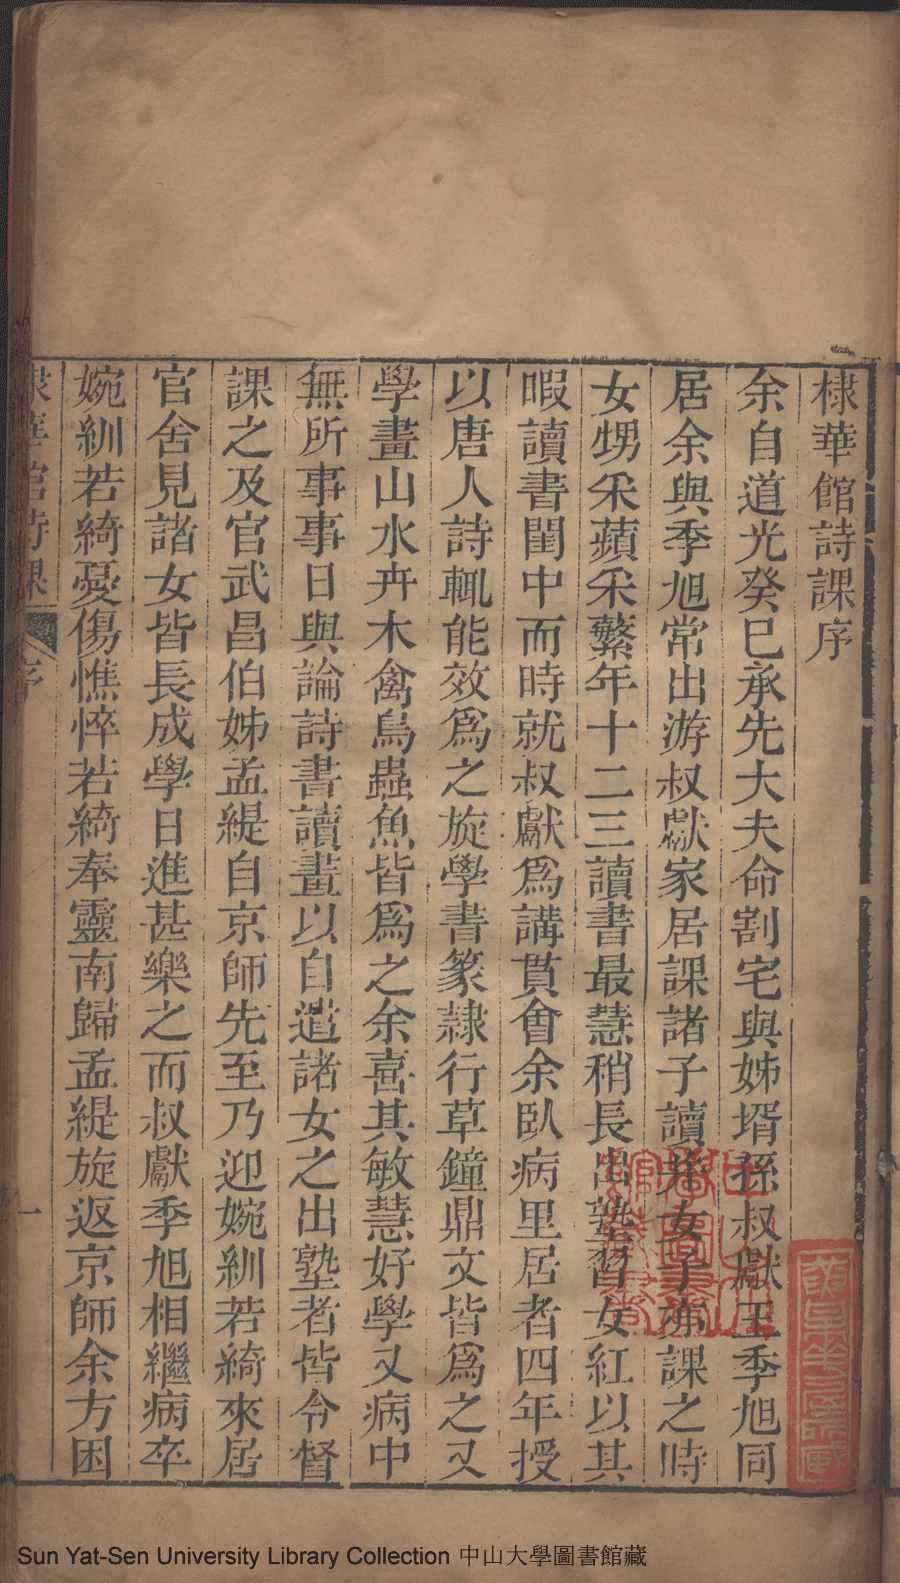 棣華館詩課序
余自道光癸巳承先大夫命割宅與姊壻孫叔獻王季旭同
居余與季旭常出游叔獻家居課諸子讀并女子亦課之時
女甥釆蘋釆蘩年十二三讀書最慧稍長出塾習女紅以其
暇讀書閨中而時就叔獻爲講貫會余臥病里居者四年授
以唐人詩輒能效爲之旋學書篆隸行草鐘鼎文皆爲之又
學畫山水卉木禽鳥蟲魚皆爲之余喜其敏慧好學又病中
無所事事日與論詩書讀畫以自遣諸女之出塾者皆令督
課之及官武昌伯姊孟緹自京師先至乃迎婉紃若綺來居
官舍見諸女皆長成學日進甚樂之而叔獻季旭相繼病卒
婉紃若綺憂傷憔悴若綺奉靈南歸孟緹旋返京師余方困
棣華館詩課
序
一
Sun Yat-Sen University Library Collection 中山大學圖書館藏